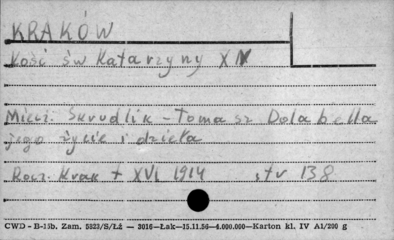 KRAKÓW
Kość św Katarzyny X N
Miecz. Skrudlik - Tomasz Dolabella
jego życie i dzieła
Rocz. Krak t XVI 1914 str 138
CWD - B-15b. Zam. 5823/S/Lż — 3016—Łak—15.11.56—4.000.000—Karton kl. IV A1/200 g